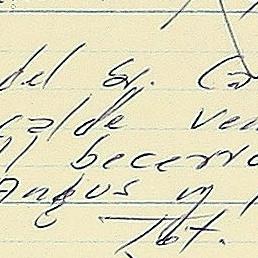 del Sr. Ca
calde ven
becerro
Angus y
Tot.